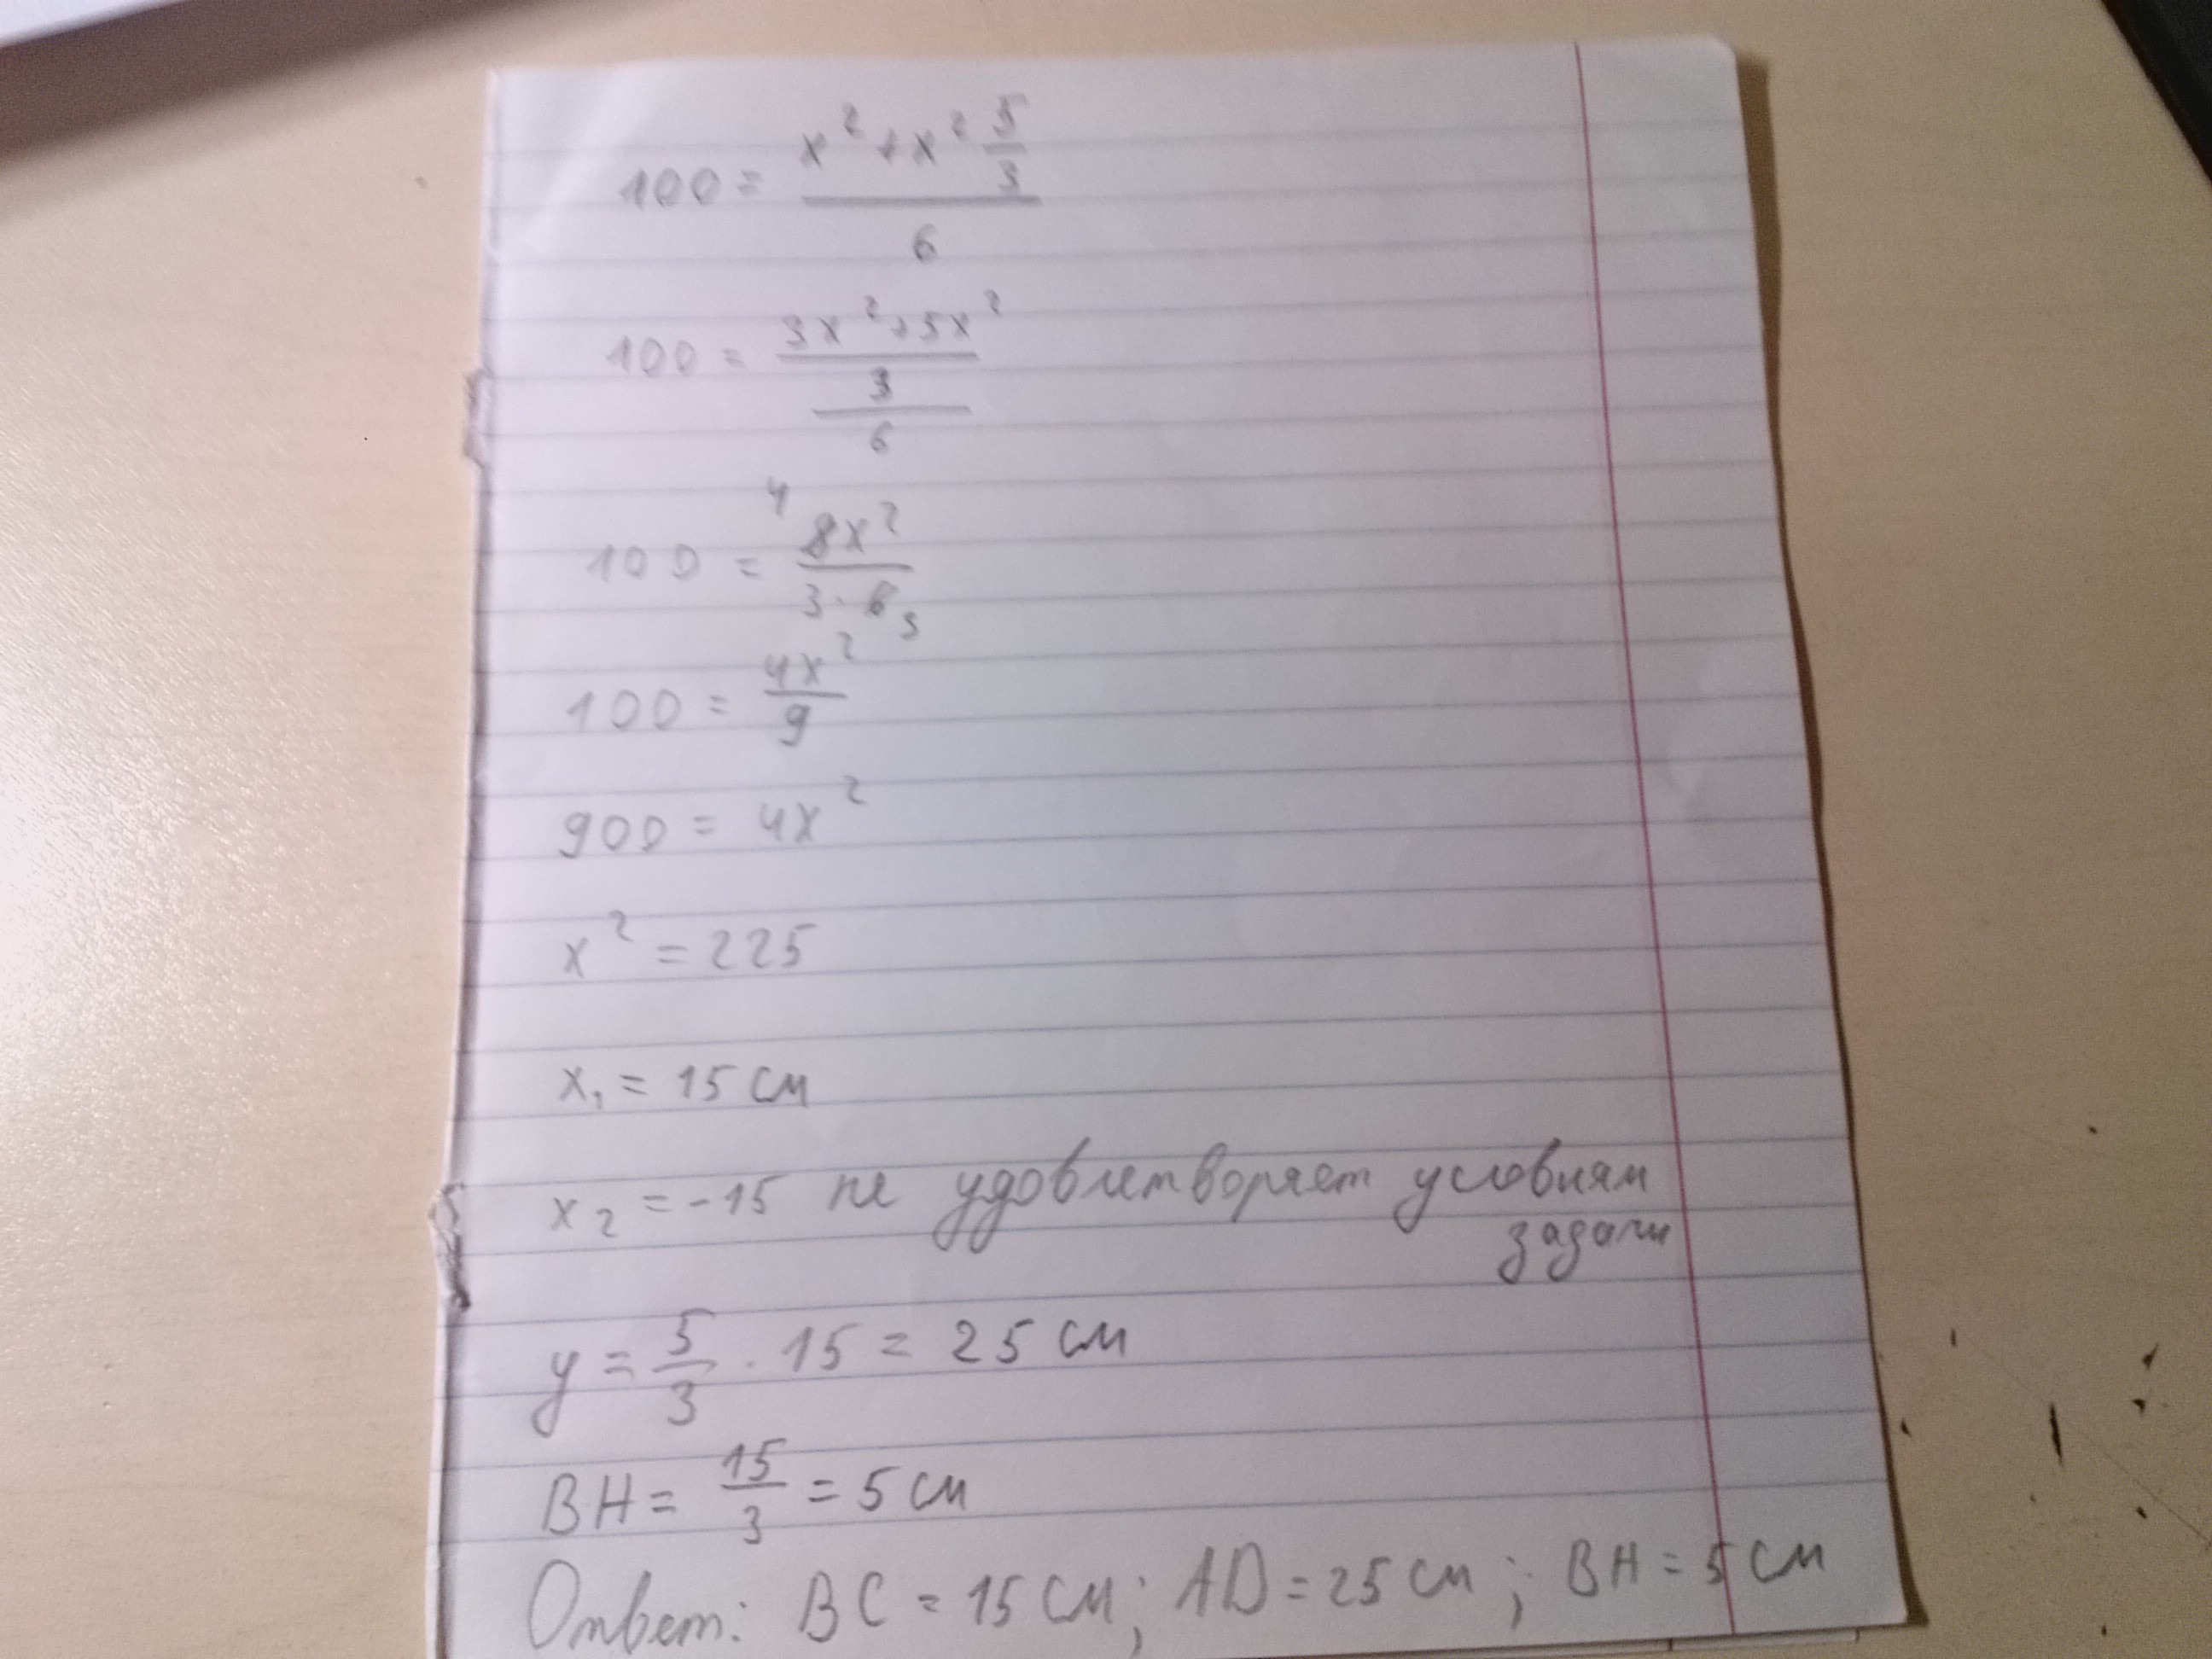 100 = (x² + x² 5/3)/6
100 = ((3x² + 5x²)/3)/6
100 = 4 8x²/(3 · 6 3)
100 = 4x²/9
900 = 4x²
x² = 225
x₁ = 15 см
x₂ = -15 не удовлетворяет условиям
задачи
y = 5/3 · 15 = 25 см
BH = 15/3 = 5 см
Ответ: BC = 15 см; AD = 25 см; BH = 5 см